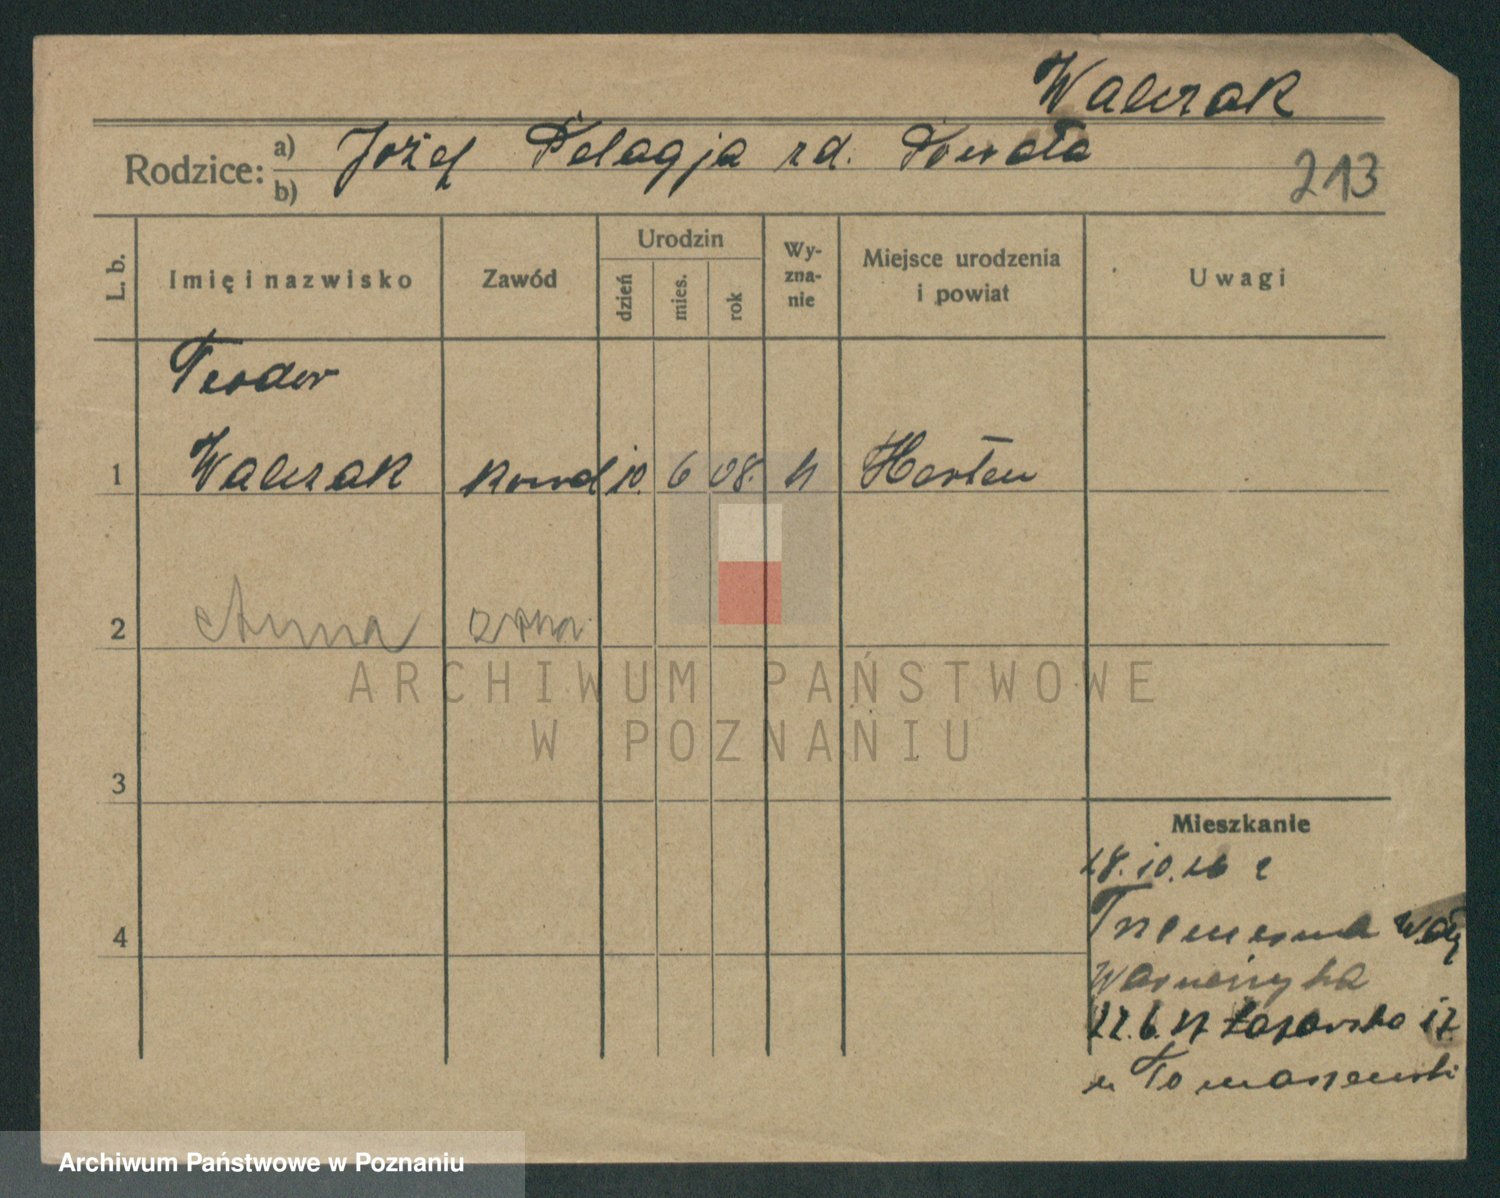 Walczak
Rodzice: a) Józef Pelagja rd.
b)
213
L. b.
Imię i nazwisko
Zawód
Urodzin
dzień
mies.
rok
Wy-
zna-
nie
Miejsce urodzenia
i powiat
Uwagi
Teodor
1 Walczak kowal 10. 6 08. k Herten
2 Anna żona
3
4
Mieszkanie
28.10.26 z
Trzemeszna
Warneńczyka
22.6.27 Łazarska 17.
u Tomaszewski
ARCHIWUM PAŃSTWOWE
W POZNANIU
Archiwum Państwowe w Poznaniu